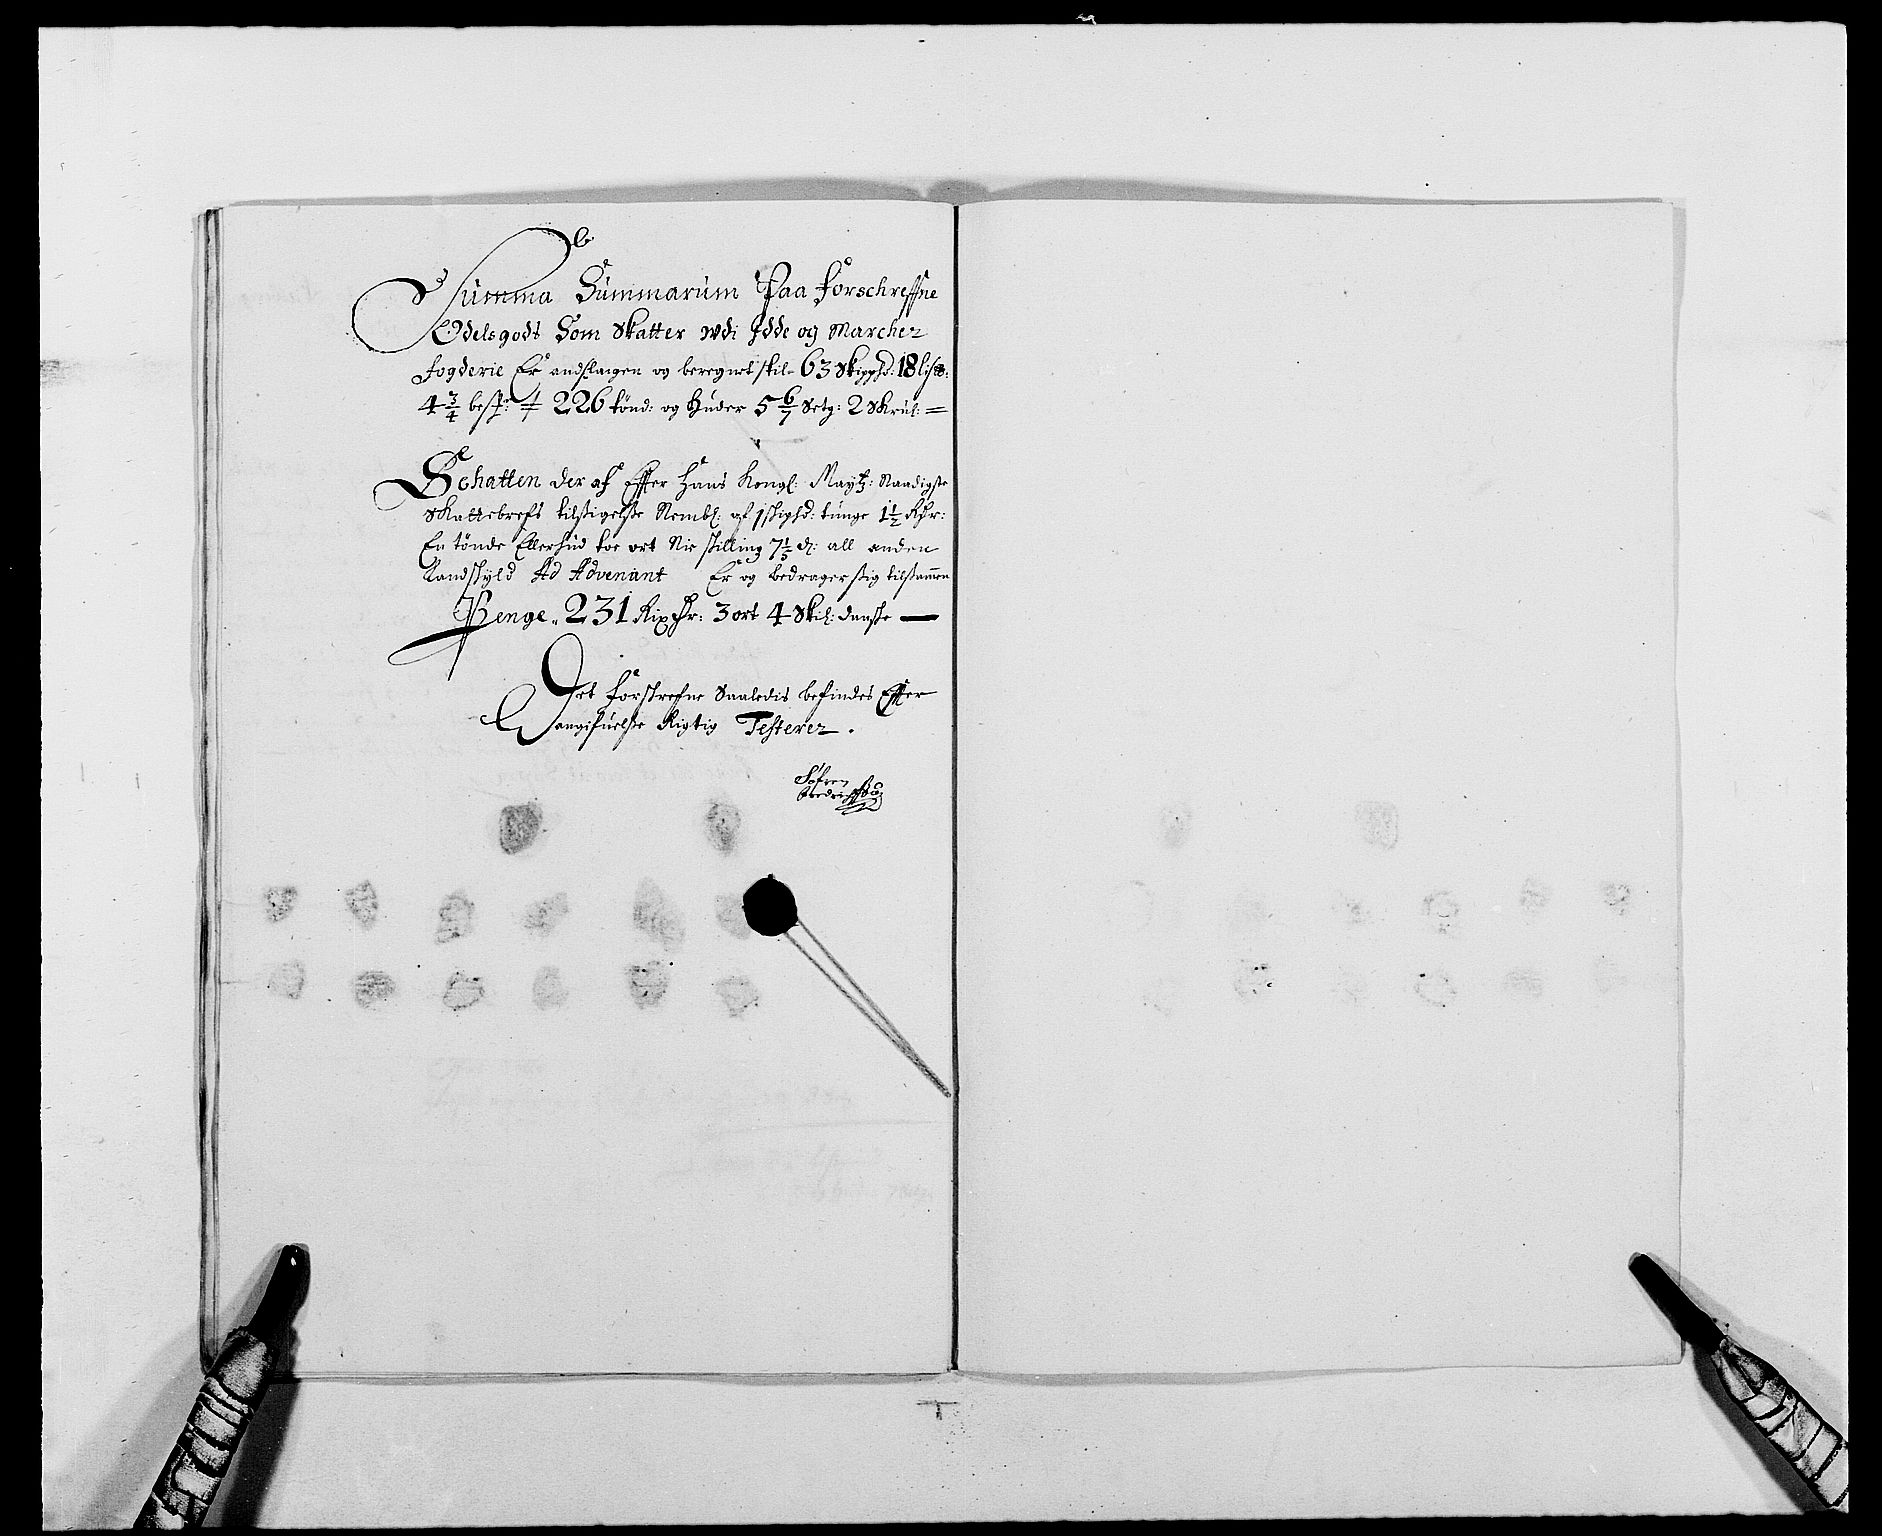 Summa Summarum Paa forschreffne
Odelsgods Som Skatter wdi Idde og Marcher
fogderie Er andslaugen og beregnet till 63 Skippd: 18 lispd:
4 3/4 bespr: 226 tönd: og Huder 5 6/7 Setg: 2 Skrul: =
Schatten der af Effter Hans Kongl: Maytz: Naadigste
Skattebrefs tilsigelse Nembl: af 1 skipld: tunge 1 1/2 Rdr:
En tønde Eller hud toe ort Nie skilling 7 1/5 d: all anden
Landskyld Ad Advenant Er og bedrager sig tilsammen
Penge 231 Rixdr: 3 ort 4 Skil: danske
Det forskrefne Saaledis befindes Effter
angifuelse Rigtig Testerer.
Søfren